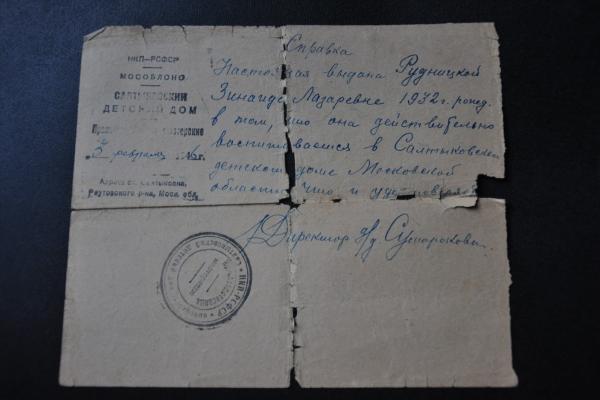 НКП–РСФСР
МОСОБЛОНО
САЛТЫКОВСКИЙ
ДЕТСКИЙ ДОМ
3 февраля 46 г.
Адрес: ст. Салтыковка,
Реутовского р-на, Моск. обл.
Справка
Настоящая выдана Рудницкой
Зинаиде Лазаревне 1932 г. рожд.
в том, что она действительно
воспитывается в Салтыковском
детском доме Московской
области, что и удостоверяет
Директор д/д Сумарокова
НКП-РСФСР